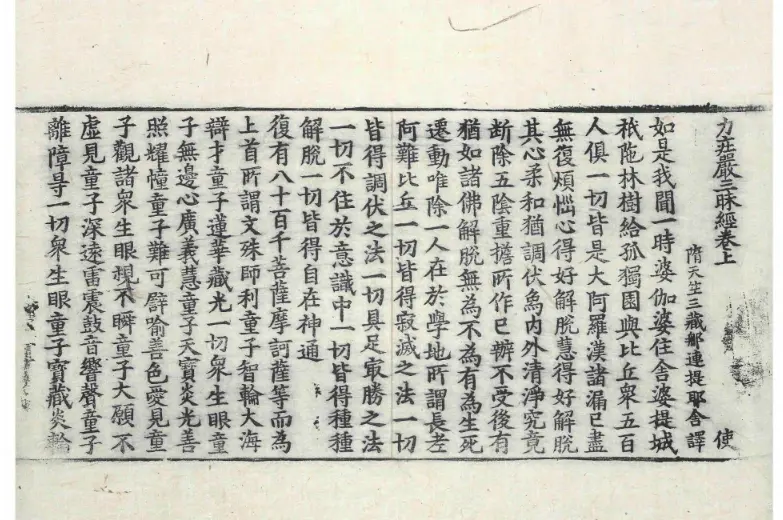 力莊嚴三昧經卷上
使
隋天竺三藏那連提耶舍譯
如是我聞一時婆伽婆住舍婆提城
祇陁林樹給孤獨園與比丘衆五百
人俱一切皆是大阿羅漢諸漏已盡
無復煩惱心得好解脫慧得好解脫
其心柔和猶調伏象內外清淨究竟
斷除五陰重擔所作已辦不受後有
猶如諸佛解脫無為不為有為生死
遷動唯除一人在於學地所謂長老
阿難比丘一切皆得寂滅之法一切
皆得調伏之法一切具足最勝之法
一切不住於意識中一切皆得種種
解脫一切皆得自在神通
復有八十百千菩薩摩訶薩等而為
上首所謂文殊師利童子智輪大海
辯才童子蓮華藏光一切衆生眼童
子無邊心廣義慧童子天寶炎光善
照耀幢童子難可譬喻善色愛見童
子觀諸衆生眼視不瞬童子大願不
虛見童子深遠雷震鼓音響聲童子
離障㝵一切衆生眼童子寶藏炎輪